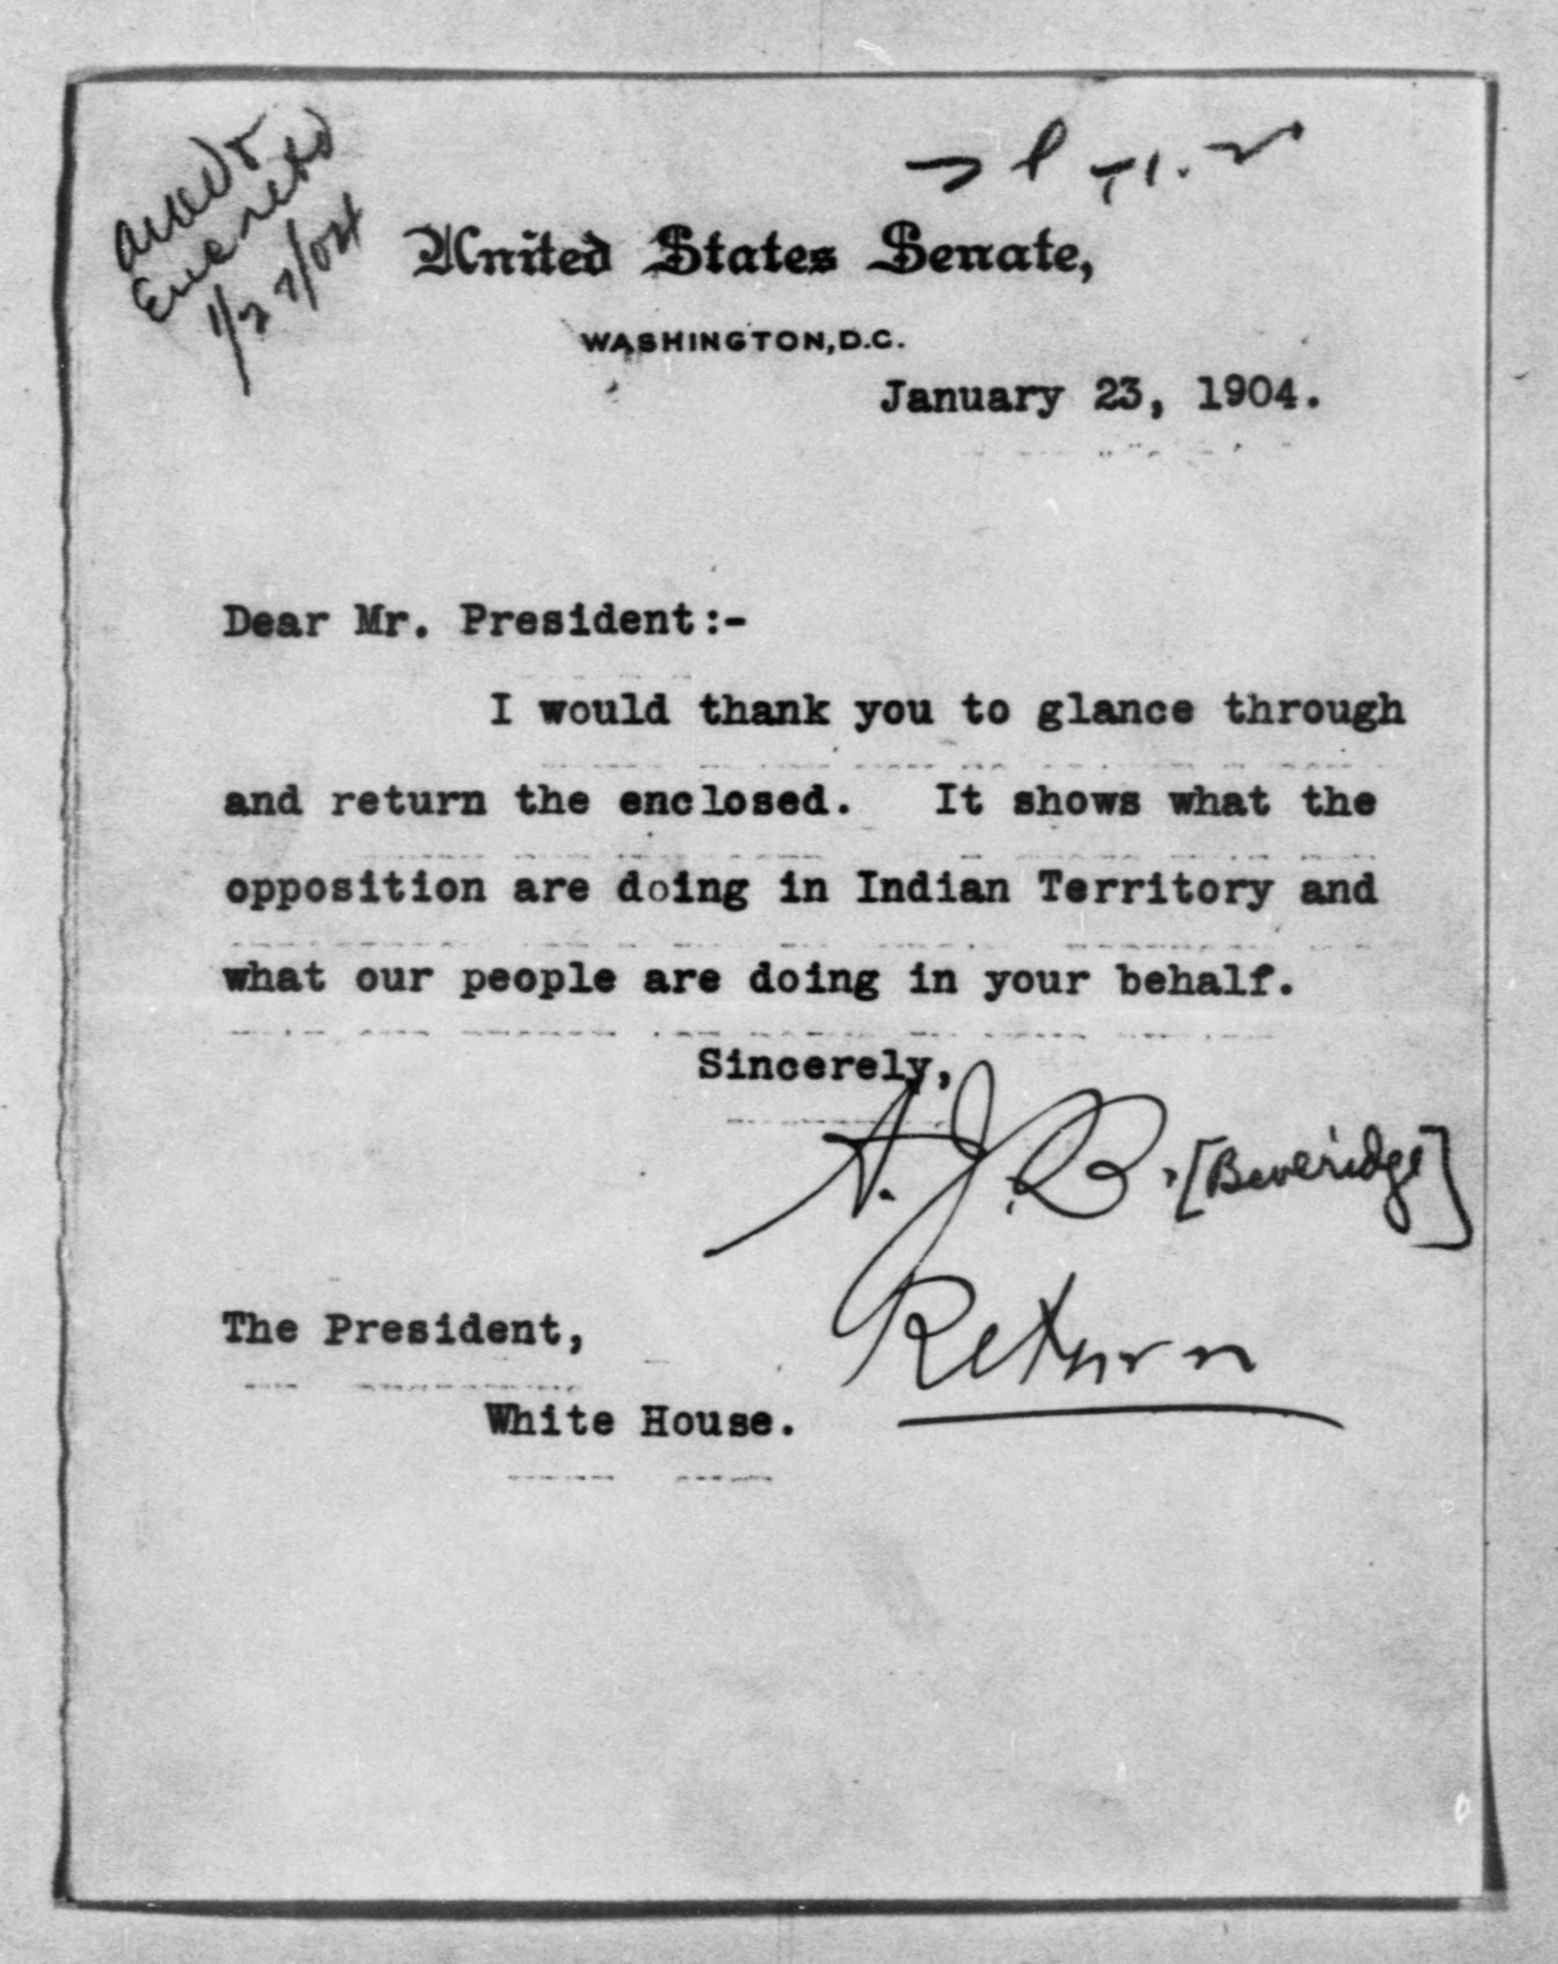 Encretd
1/27/04
United States Senate,
WASHINGTON, D.C.
January 23, 1904.
Dear Mr. President:-
I would thank you to glance through
and return the enclosed. It shows what the
opposition are doing in Indian Territory and
what our people are doing in your behalf.
Sincerely,
A. J. B. [Beveridge]
Return
The President,
White House.